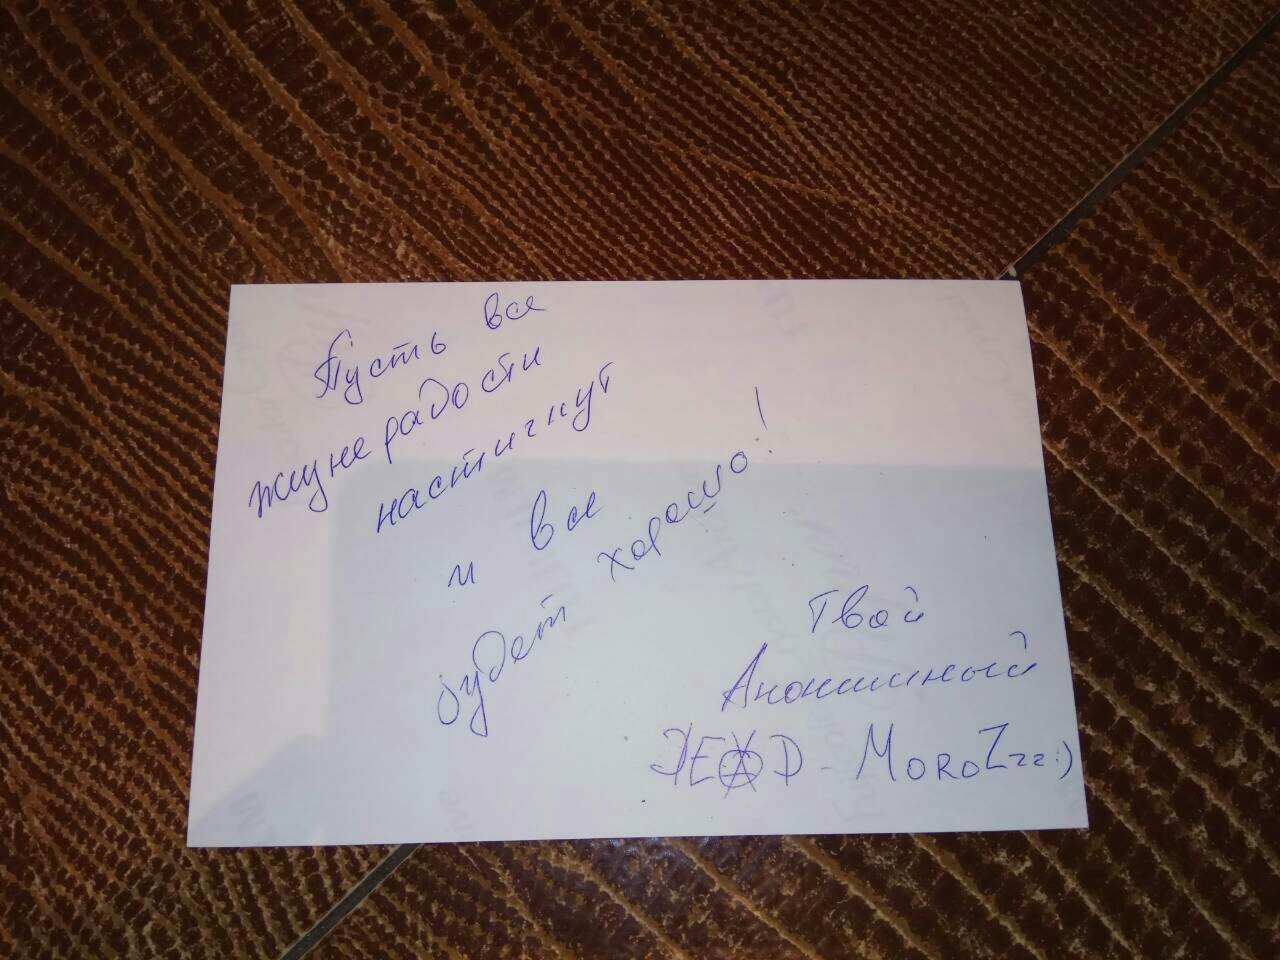 Пусть все
жизнерадости
настигнут
и все
будет хорошо!
Твой
Анонимный
DEAD - MoroZzz:)